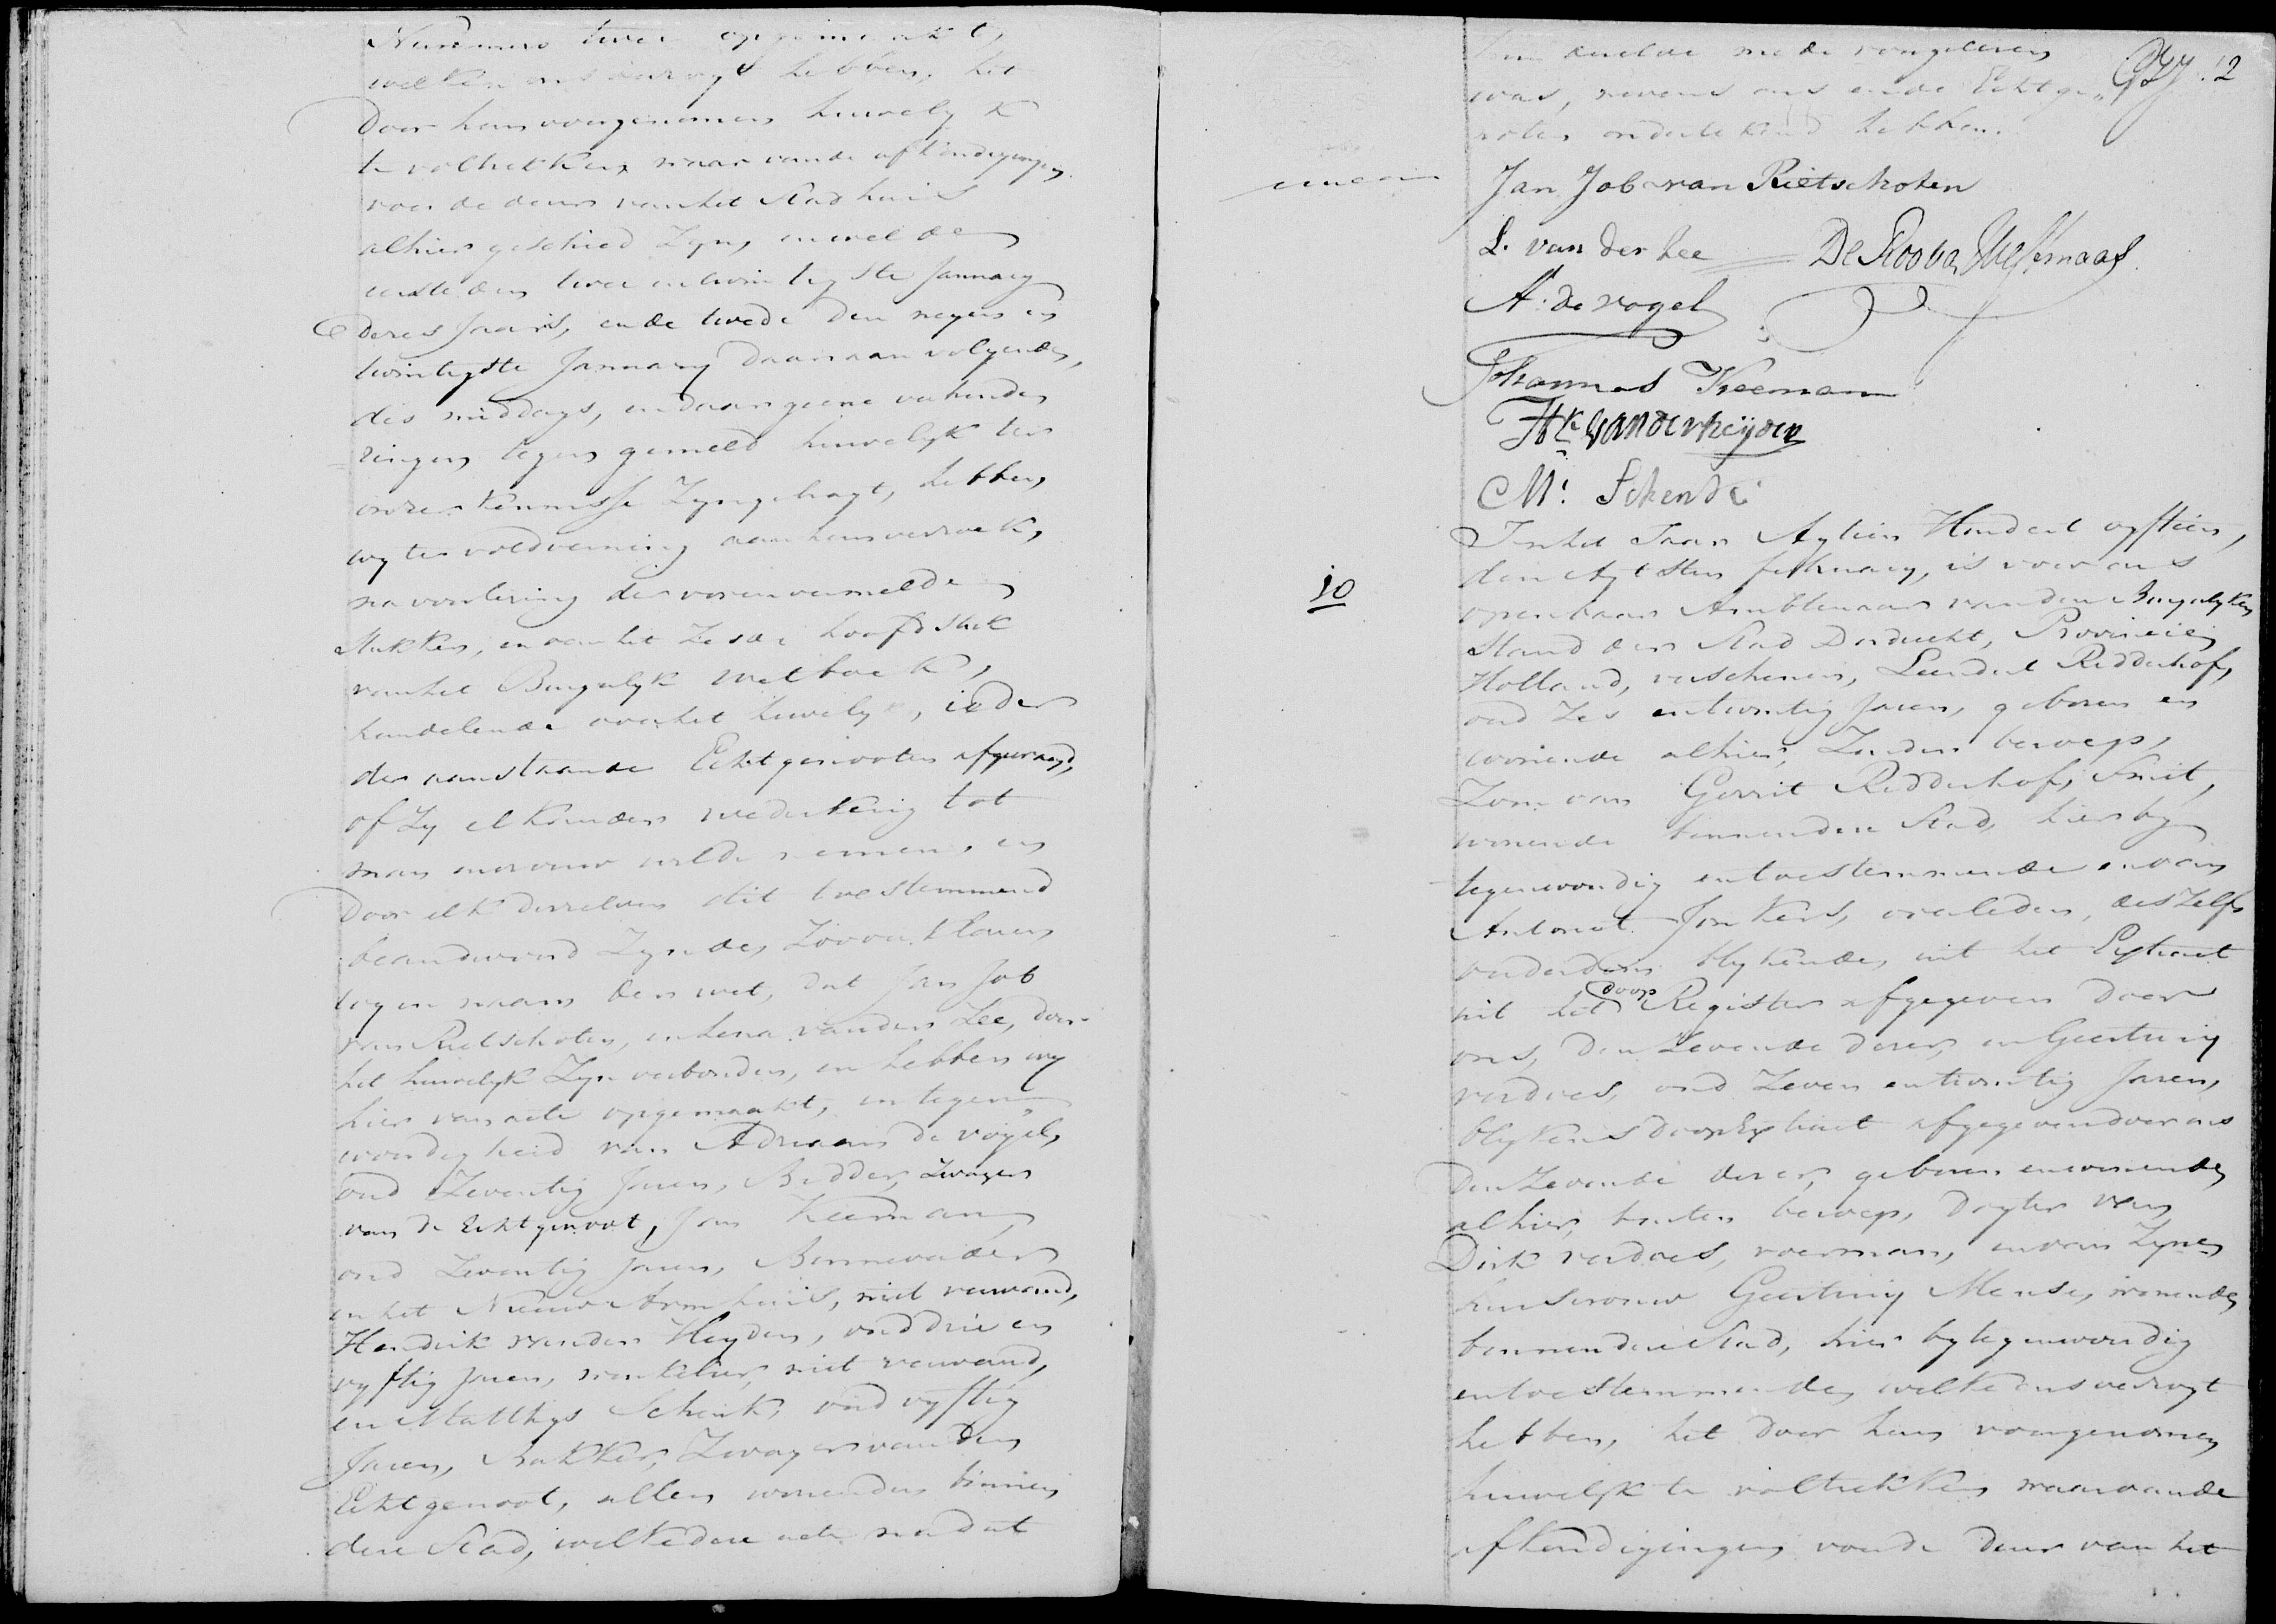 Nummero twee opgemaakt,
welken ons verzogt hebben, het
Door hun voorgenomen huwelyk
te voltrekken waar van de afkondigingen
voor de deur van het Stadhuis
alhier geschied Zyn, en wel de
eerste den twee en twintigste January
dezes Jaars, en de twede den negen en
twintigste January daaraanvolgende,
des middags, en daar geene verhinde
ringen tegens gemeld huwelyk ter
onzer kennisse Zyn gebragt, hebben
wy ter voldoening aan hun verzoek,
na voorlezing der vorenvermelde
Stukken, en van het Zesde hoofdstuk
van het Burgerlyk Wetboek,
handelende over het huwelyk, ieder
der aanstaande Echtgenooten afgevraagd,
of Zy elkander wederkerig tot
man en vrouw wilde nemen, en
Door elk derzelven dit toestemmend
beandwoord Zynde, Zoo verklaren
wy in naam der wet, dat Jan Job
van Rietschoten, en Lena van der Lee, door
het huwelyk Zyn verbonden, en hebben wy
hier van acte opgemaakt, in tegen„
woordigheid van Adriaan de Vogel,
oud Zeventig Jaren, Bidder, Zwager
van de Echtgenoot, Jan Keeman,
oud Zeventig Jaren, Binnevader
in het Nieuw Armhuis, niet verwand,
Hendrik van der Heyden, oud drie en
vyftig Jaren, winkelier, niet verwand,
en Matthys Schenk, oud vyftig
Jaren, Bakker, Zwager van den
Echtgenoot, allen wonende binnen
deze Stad, welke deze acte nadat
hun dezelve mede voorgelezen
was, nevens ons en de Echtge„
noten ondertekend hebben.
12
Jan Job van Rietschoten
L. van der Lee De Roo van Westmaas
A. de vogel
Johannes Keeman
Hk van der heijden
M. Schenk
10
In het Jaar Agtien Honderd vyftien,
den Agtsten february, is voor ons
openbaar Amblenaar van den Burgerlyken
Stand der Stad Dordrecht, Provincie
Holland, verschenen, Leendert Redderhof,
oud Zes en twintig Jaren, geboren en
wonende alhier, Zonder beroep,
Zoon van Gerrit Redderhof, Smit,
wonende binnen deze Stad, hier by
tegenwoordig en toestemmende en van
Antonet Jonkers, overleden, deszelfs
ouderdom blykende, uit het Extract
uit het doop Register afgegeven door
ons, den Zevende dezer, en Geertruy
verdoes, oud Zeven en twintig Jaren,
blykens doop Extract afgegeven door ons
den Zevende dezer, geboren en wonende
alhier, buiten beroep, Dogter van
Dirk verdoes, voerman, en van Zyne
huisvrouw Geertruy Mense, wonende
binnen deze Stad, hier by tegenwoordig
en toestemmende, welke ons verzogt
hebben, het Door hun voorgenomen
huwelyk te voltrekken waar van de
afkondigingen voor de Deur van het